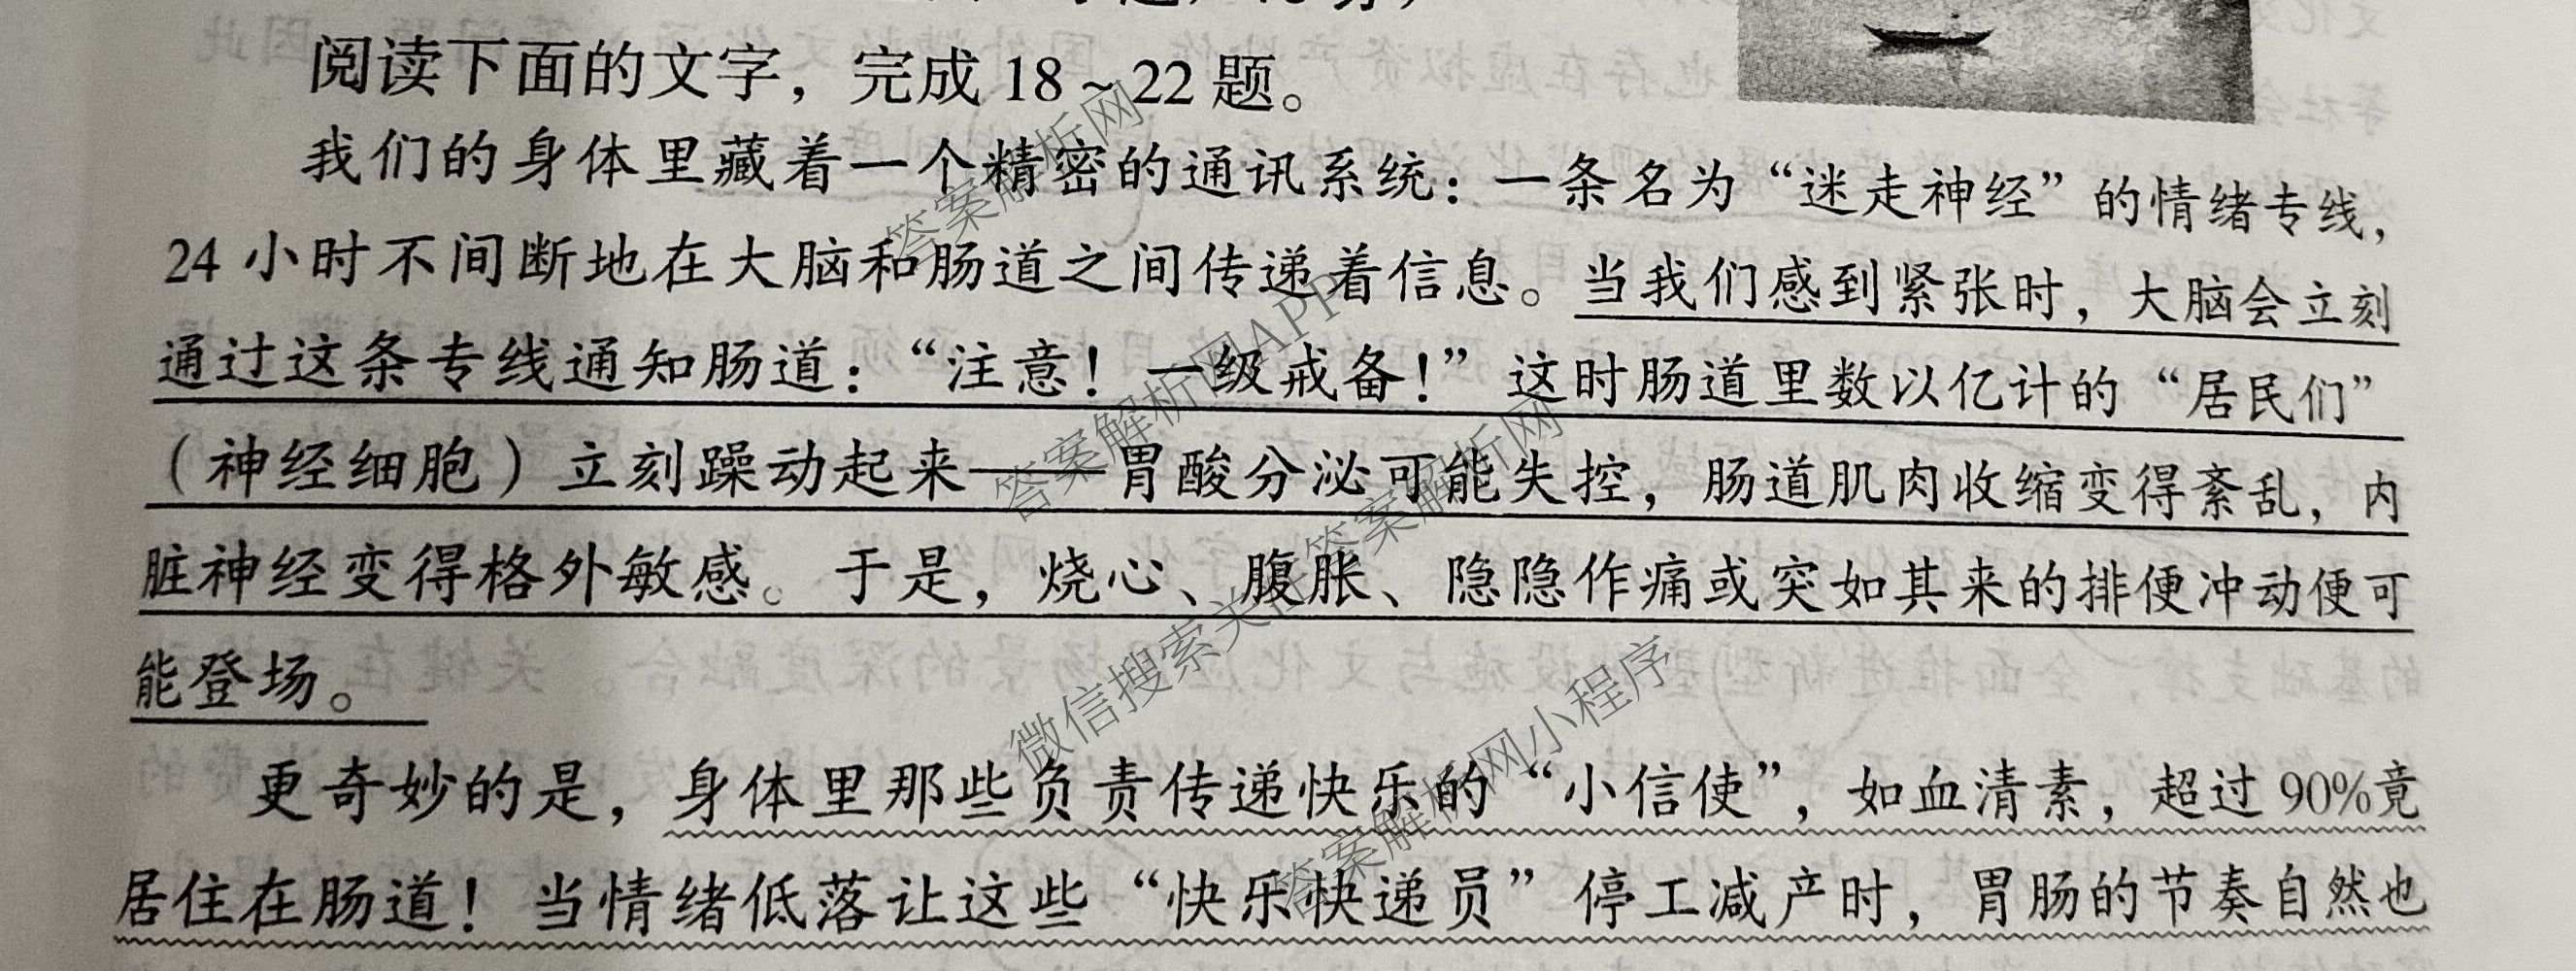 阅读下面的文字，完成 18～22 题。
我们的身体里藏着一个精密的通讯系统：一条名为“迷走神经”的情绪专线，
24 小时不间断地在大脑和肠道之间传递着信息。当我们感到紧张时，大脑会立刻
通过这条专线通知肠道：“注意！一级戒备！”这时肠道里数以亿计的“居民们”
（神经细胞）立刻躁动起来——胃酸分泌可能失控，肠道肌肉收缩变得紊乱，内
脏神经变得格外敏感。于是，烧心、腹胀、隐隐作痛或突如其来的排便冲动便可
能登场。
更奇妙的是，身体里那些负责传递快乐的“小信使”，如血清素，超过 90%竟
居住在肠道！当情绪低落让这些“快乐快递员”停工减产时，胃肠的节奏自然也
答案解析网
答案解析网APP
答案解析网
微信搜索关注
答案解析网小程序